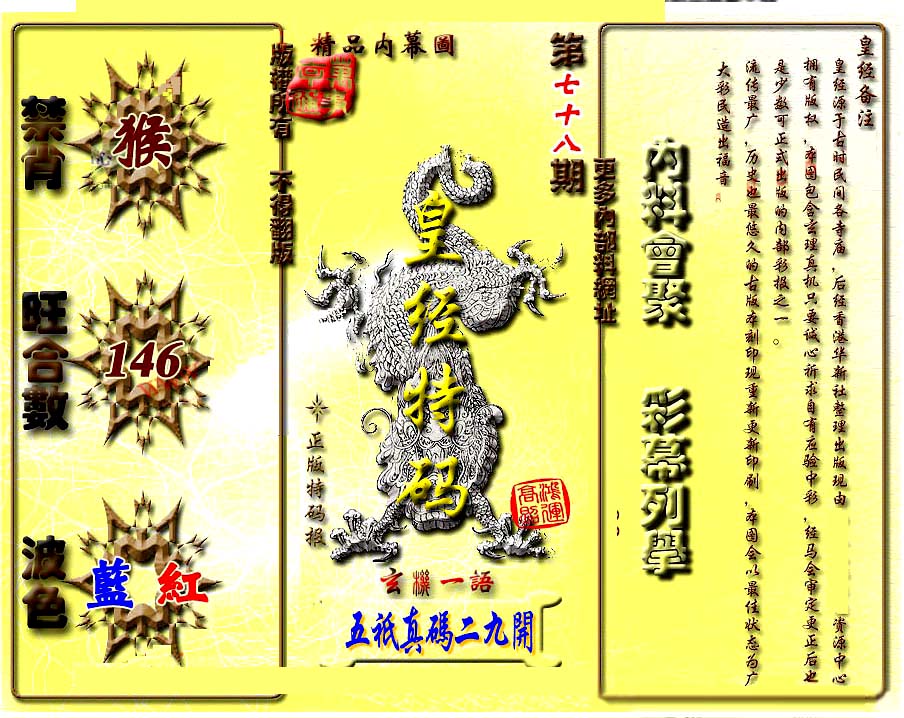 精品内幕圖
第七十八期
版權所有 不得翻版
更多內部料網址
禁肖
猴
旺合數
146
波色
藍 紅
皇经特码
正版特码招
鴻運高照
玄機一語
五祇真碼二九開
內料會聚 彩幕列舉
皇经备注
皇经源于古时民间各寺庙，后经香港华新社整理出版现由 资源中心
拥有版权，本图包含玄理真机只要诚心祈求自有应验中彩，经马会审定更正后也
是少数可正式出版的内部彩报之一。
流传最广，历史也最悠久的古版本刻印现重新更新印刷，本图会以最佳状态为广
大彩民造出福音